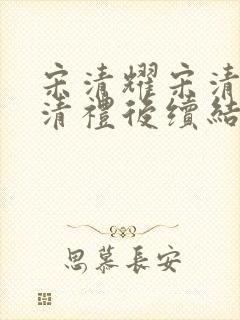 宋清耀宋清
清禮後續結
思慕長安